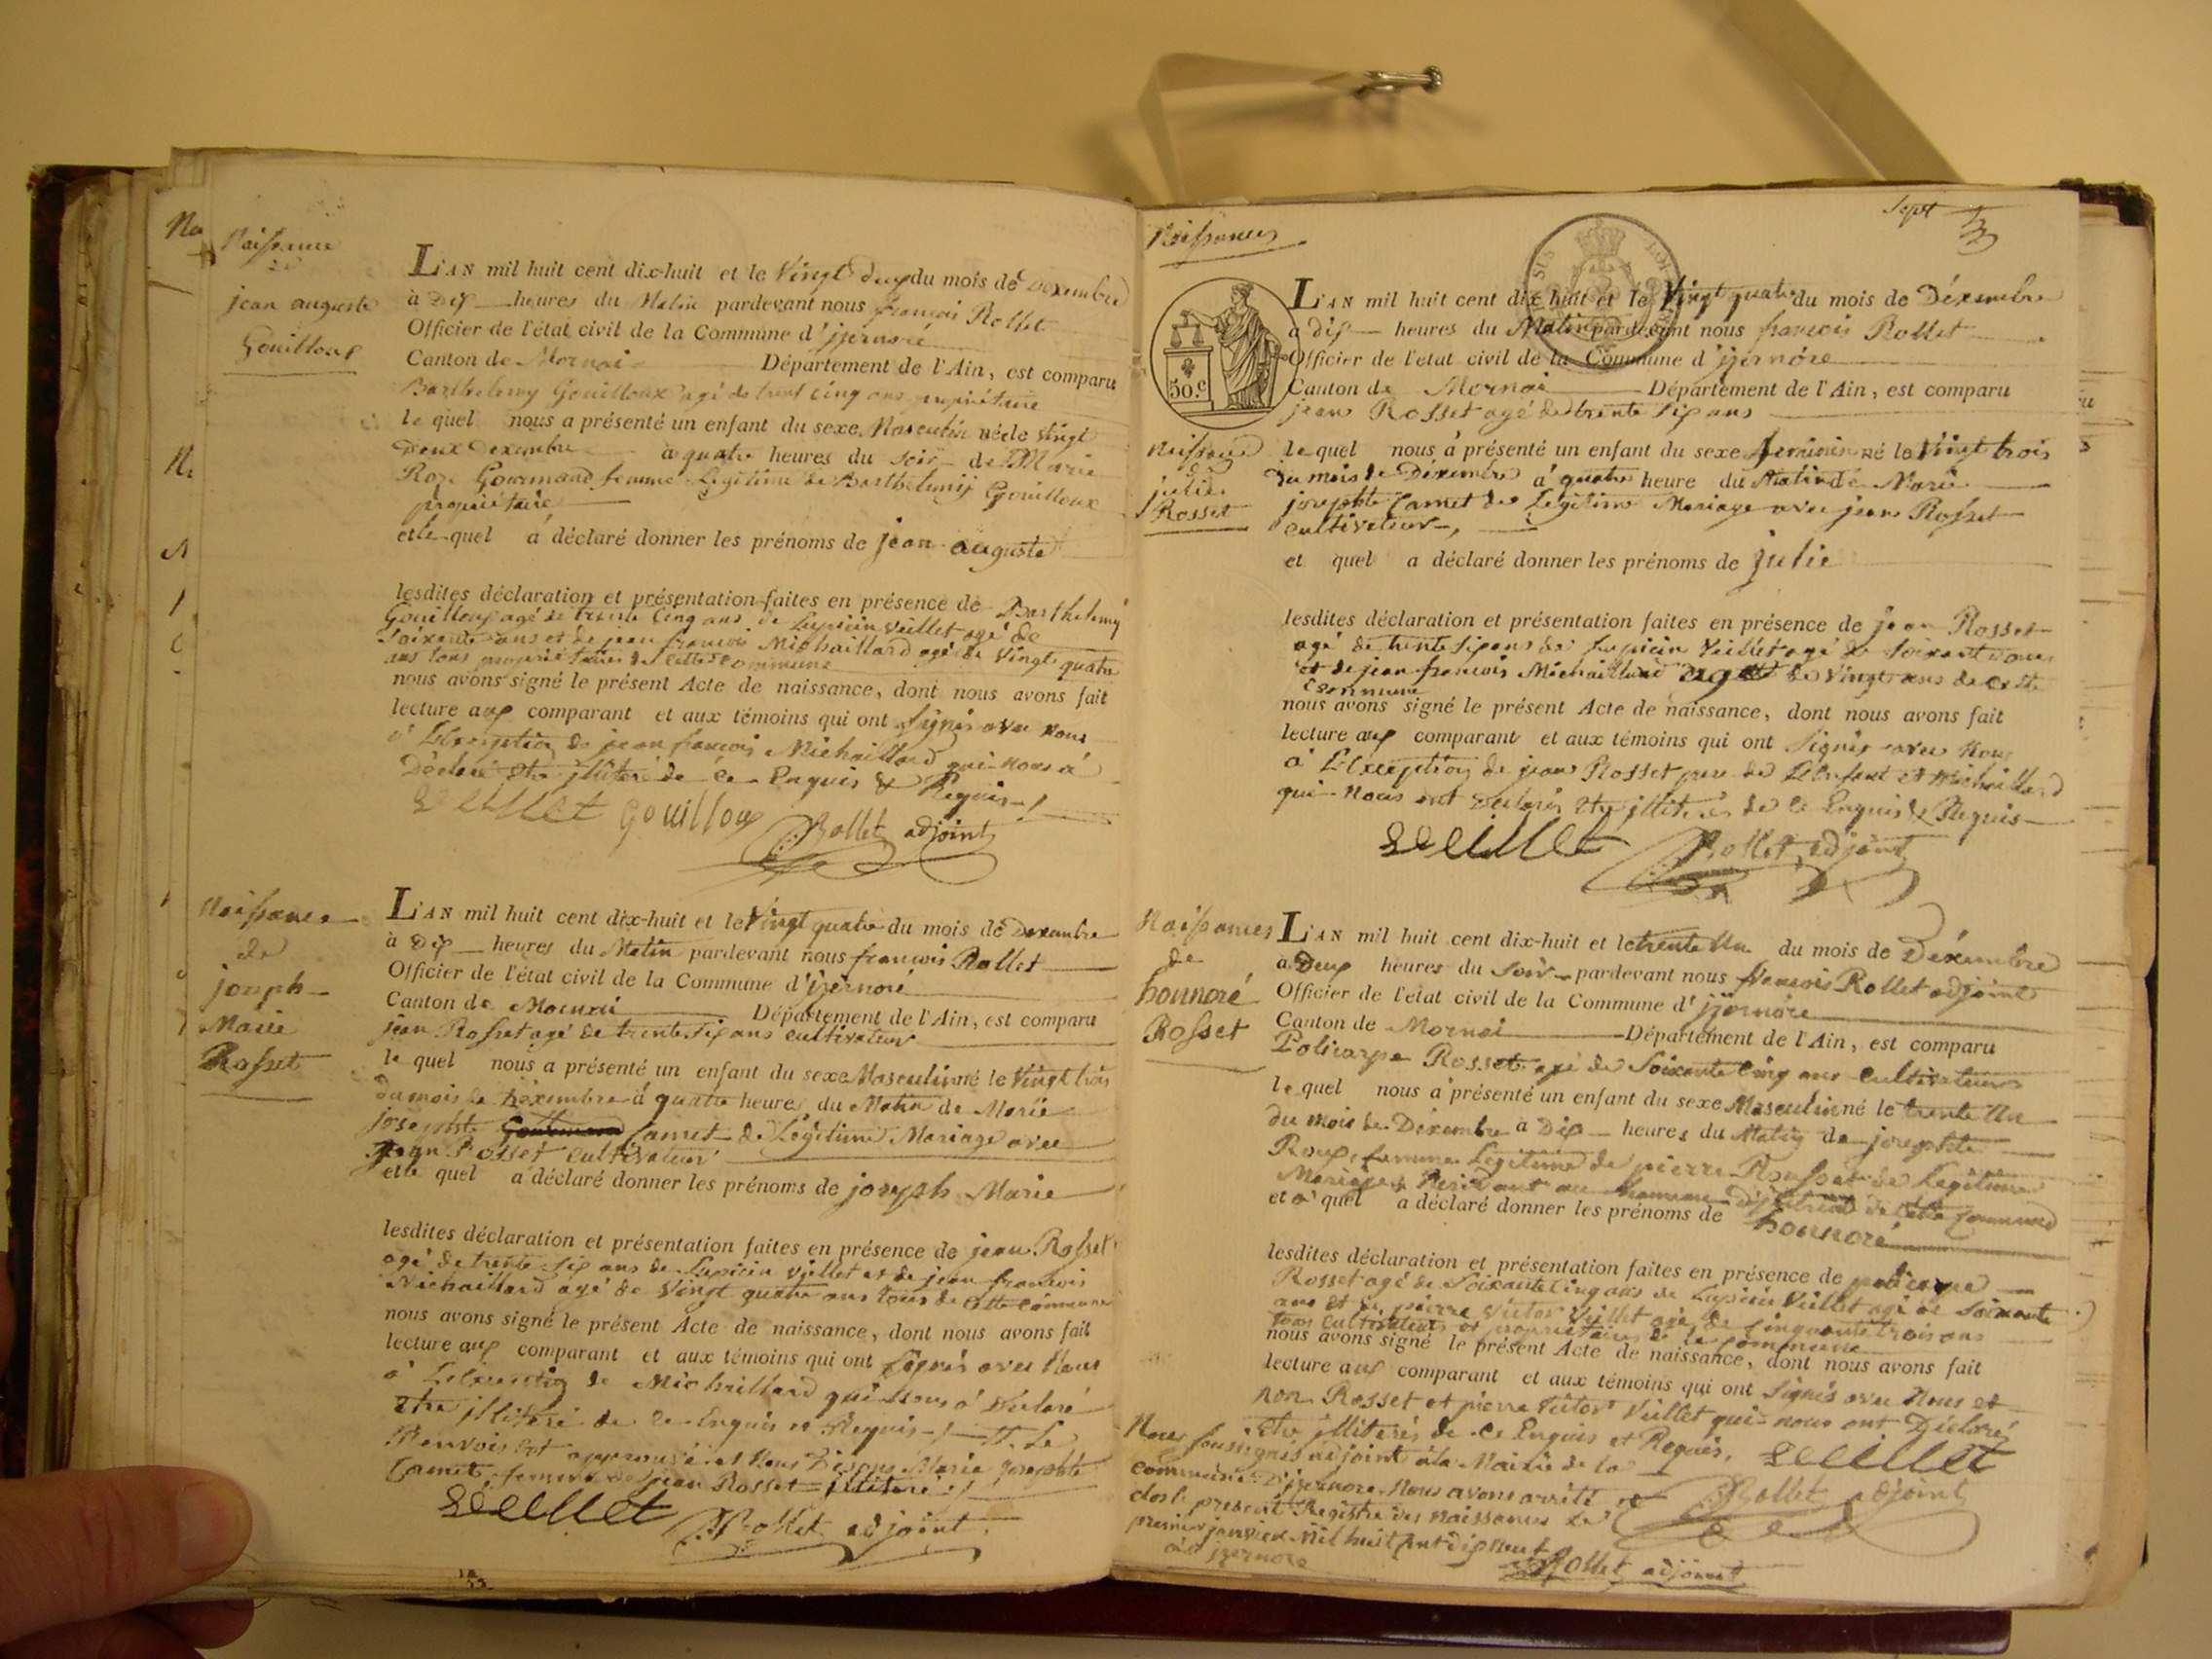 Naissance
de
jean auguste
Gouilloux
L'AN mil huit cent dix-huit et le Vingt deux du mois de Dexembre
à Dix heures du Matin pardevant nous françois Rollet
Officier de l'état civil de la Commune d'jzernore
Canton de Mornai Département de l'Ain, est comparu
Barthelemy Gouilloux agé de trent cinq ans propriétaire
le quel nous a présenté un enfant du sexe Masculin né le Vingt
Deux Dexembre à quatre heures du Soir de Marie
Roze Gourmand femme Légitime de Barthelemij Gouilloux
propriétaire
et le quel a déclaré donner les prénoms de jean auguste
lesdites déclaration et présentation faites en présence de Barthelemy
Gouilloux agé de trente Cinq ans de Lupicin Veillet agé de
Soixante ans et de jean françois Michaillard agé de Vingt quatre
ans tous propriétaires de cette Commune
nous avons signé le présent Acte de naissance, dont nous avons fait
lecture aux comparant et aux témoins qui ont signés avec nous
à L'Exception de jean françois Michaillard qui nous à
Déclaré Etre jlliteré de ce Enquis & Requis
Veuillet Gouilloux
Rollet adjoint
Naissance
de
joseph
Marie
Rosset
L'AN mil huit cent dix-huit et le Vingt quatre du mois de Dexembre
à Dix heures du Matin pardevant nous françois Rollet
Officier de l'état civil de la Commune d'jzernore
Canton de Mornai Département de l'Ain, est comparu
jean Rosset agé de trente Six ans cultivateur
le quel nous a présenté un enfant du sexe Masculin né le Vingt trois
du mois de Dexembre à quatre heures du Matin de Marie
josephte Camet de Légitime Mariage avec
jean Rosset cultivateur
et le quel a déclaré donner les prénoms de joseph Marie
lesdites déclaration et présentation faites en présence de jean Rosset
agé de trente Six ans de Lupicin Veillet et de jean françois
Michaillard agé de Vingt quatre ans tous de cette commune
nous avons signé le présent Acte de naissance, dont nous avons fait
lecture aux comparant et aux témoins qui ont signés avec Nous
à L'Exception de Michaillard qui Nous à Déclaré
Etre jlliteré de ce Enquis et Requis Le
Renvois est approuvé et Nous Disons Marie josephte
Camet femme de jean Rosset jlliteré
Veuillet
Rollet adjoint
Sept
Naissances
50.c
L'AN mil huit cent dix-huit et le Vingt quatre du mois de Déxembre
à Dix heures du Matin pardevant nous françois Rollet
Officier de l'état civil de la Commune d'jzernore
Canton de Mornai Département de l'Ain, est comparu
jean Rosset agé de trente Six ans
Naissance
de
julie
Rosset
le quel nous à présenté un enfant du sexe feminin né le Vingt trois
du mois de Déxembre à quatre heure du Matin de Marie
josephte Camet de Légitime Mariage avec jean Rosset
cultivateur
et quel a déclaré donner les prénoms de julie
lesdites déclaration et présentation faites en présence de jean Rosset
agé de trente Six ans de Lupicin Veillet agé de Soixante ans
et de jean françois Michaillard agé de Vingt ans de cette
commune
nous avons signé le présent Acte de naissance, dont nous avons fait
lecture aux comparant et aux témoins qui ont Signés avec Nous
à L'Exception de jean Rosset pere de L'Enfant et Michaillard
qui Nous ont déclarés Etre jlliterés de ce Enquis & Requis
Veuillet
Rollet adjoint
Naissances
de
honnoré
Rosset
L'AN mil huit cent dix-huit et le trente Un du mois de Déxembre
à Deux heures du Soir pardevant nous françois Rollet adjoint
Officier de l'état civil de la Commune d'jzernore
Canton de Mornai Département de l'Ain, est comparu
Policarpe Rosset agé de Soixante Cinq ans Cultivateur
le quel nous à présenté un enfant du sexe Masculin né le trente Un
du mois de Déxembre à Dix heures du Matin de josephte
Roux femme Légitime de pierre Rosset de Légitime
Mariage Residant au hameau de cette commune
et à quel a déclaré donner les prénoms de honnoré
lesdites déclaration et présentation faites en présence de policarpe
Rosset agé de Soixante Cinq ans de Lupicin Veillet agé de Soixante
ans et de pierre Victor Veillet agé de Cinquante trois ans
tous cultivateurs et propriétaires de la Commune
nous avons signé le présent Acte de naissance, dont nous avons fait
lecture aux comparant et aux témoins qui ont Signés avec Nous et
non Rosset et pierre Victor Veillet qui nous ont Déclarés
Etre jlliterés de ce Enquis et Requis. Veuillet
Nous soussignés adjoint à la Mairie de la
commune D'jzernore Nous avons arrêté et
clos le present Registre des naissances Le
premier janvier Mil huit Cent dix neuf
à jzernore
Rollet adjoint
Rollet adjoint